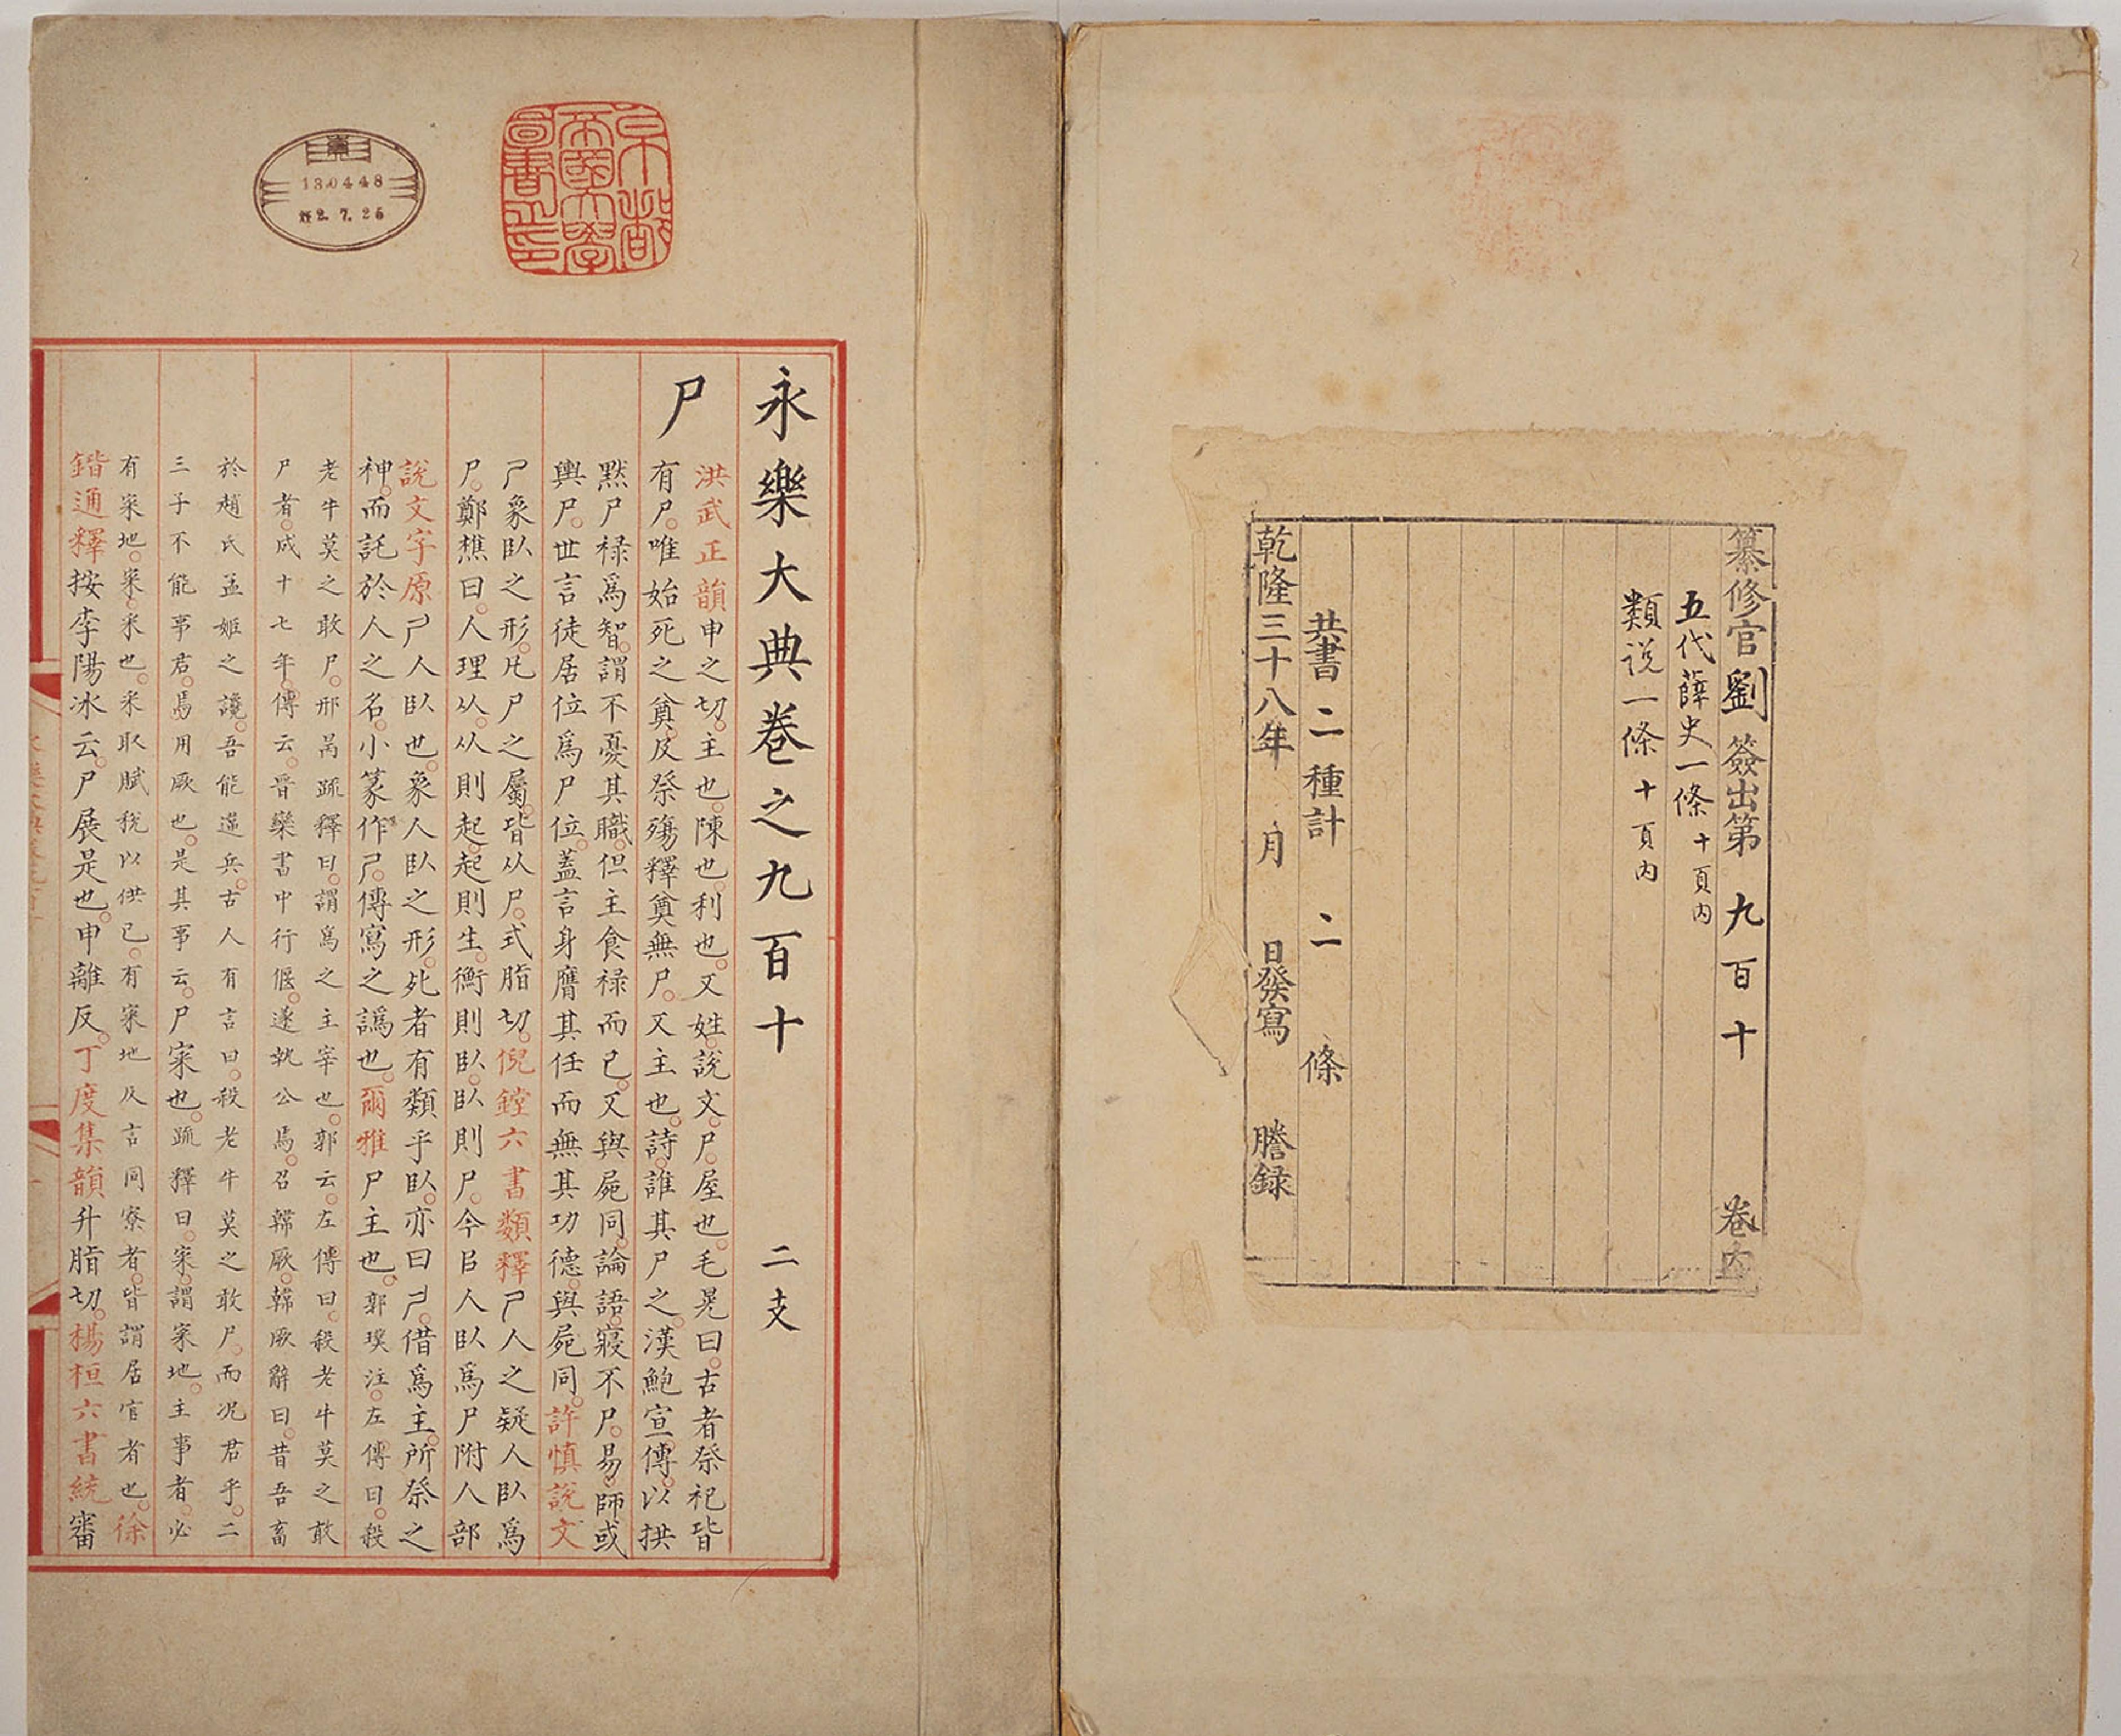 纂修官劉簽出第九百十卷内
五代薛史一條十頁内
類說一條十頁内
共書二種計二條
乾隆三十八年月日發寫謄録
京都
帝國大學
圖書之印
130448
2.7.25
永樂大典卷之九百十 二支
尸
洪武正韻申之切。主也。陳也。利也。又姓。說文。尸。屋也。毛晃曰。古者祭祀皆
有尸。唯始死之奠。及祭殤釋奠無尸。又主也。詩。誰其尸之。漢鮑宣傳。以拱
黙尸禄爲智。謂不憂其職。但主食禄而已。又與屍同。論語。寢不尸。易。師或
輿尸。世言徒居位爲尸位。蓋言身膺其任而無其功德。與屍同。許慎說文
尸象臥之形。凡尸之屬。皆从尸。式脂切。倪鏜六書類釋尸人之疑人臥爲
尸。鄭樵曰。人理从。从則起。起則生。衡則臥。臥則尸。今㠯人臥爲尸附人部
說文字原尸人臥也。象人臥之形。死者有類乎臥。亦曰尸。借爲主。所祭之
神。而託於人之名。小篆作尸。傳寫之譌也。爾雅尸主也。郭璞注。左傳曰。殺
老牛莫之敢尸。邢昺疏釋曰。謂爲之主宰也。郭云。左傳曰。殺老牛莫之敢
尸者。成十七年。傳云。晋欒書中行偃。遂執公焉。召韓厥。韓厥辭曰。昔吾畜
於趙氏孟姬之讒。吾能違兵。古人有言曰。殺老牛莫之敢尸。而况君乎。二
三子不能事君。焉用厥也。是其事云。尸寀也。疏釋曰。寀。謂寀地。主事者。必
有寀地。寀。采也。采取賦稅以供已。有寀地及言同寮者。皆謂居官者也。徐
鍇通釋按李陽冰云。尸展是也。申離反。丁度集韻升脂切。楊桓六書統審